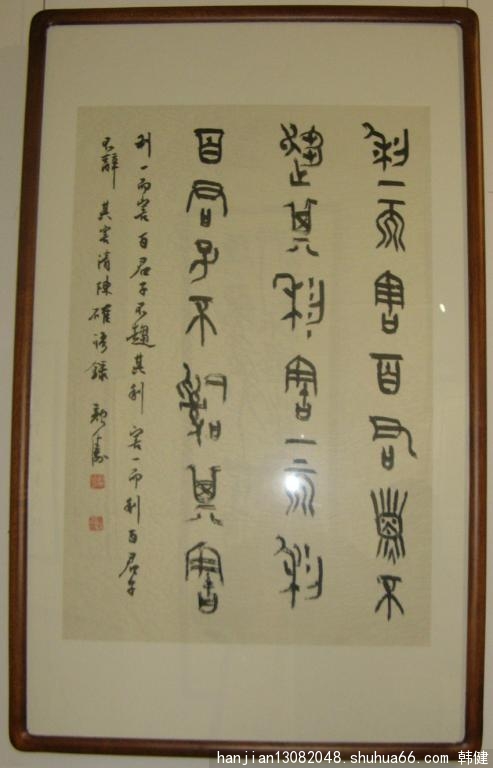 利一而害百君子不
趨其利害一而利
百君子不辭其害
利一而害百君子不趨其利 害一而利百君子
不辭 其害清陳確語錄
hanjian13082048.shuhua66.com 韩健